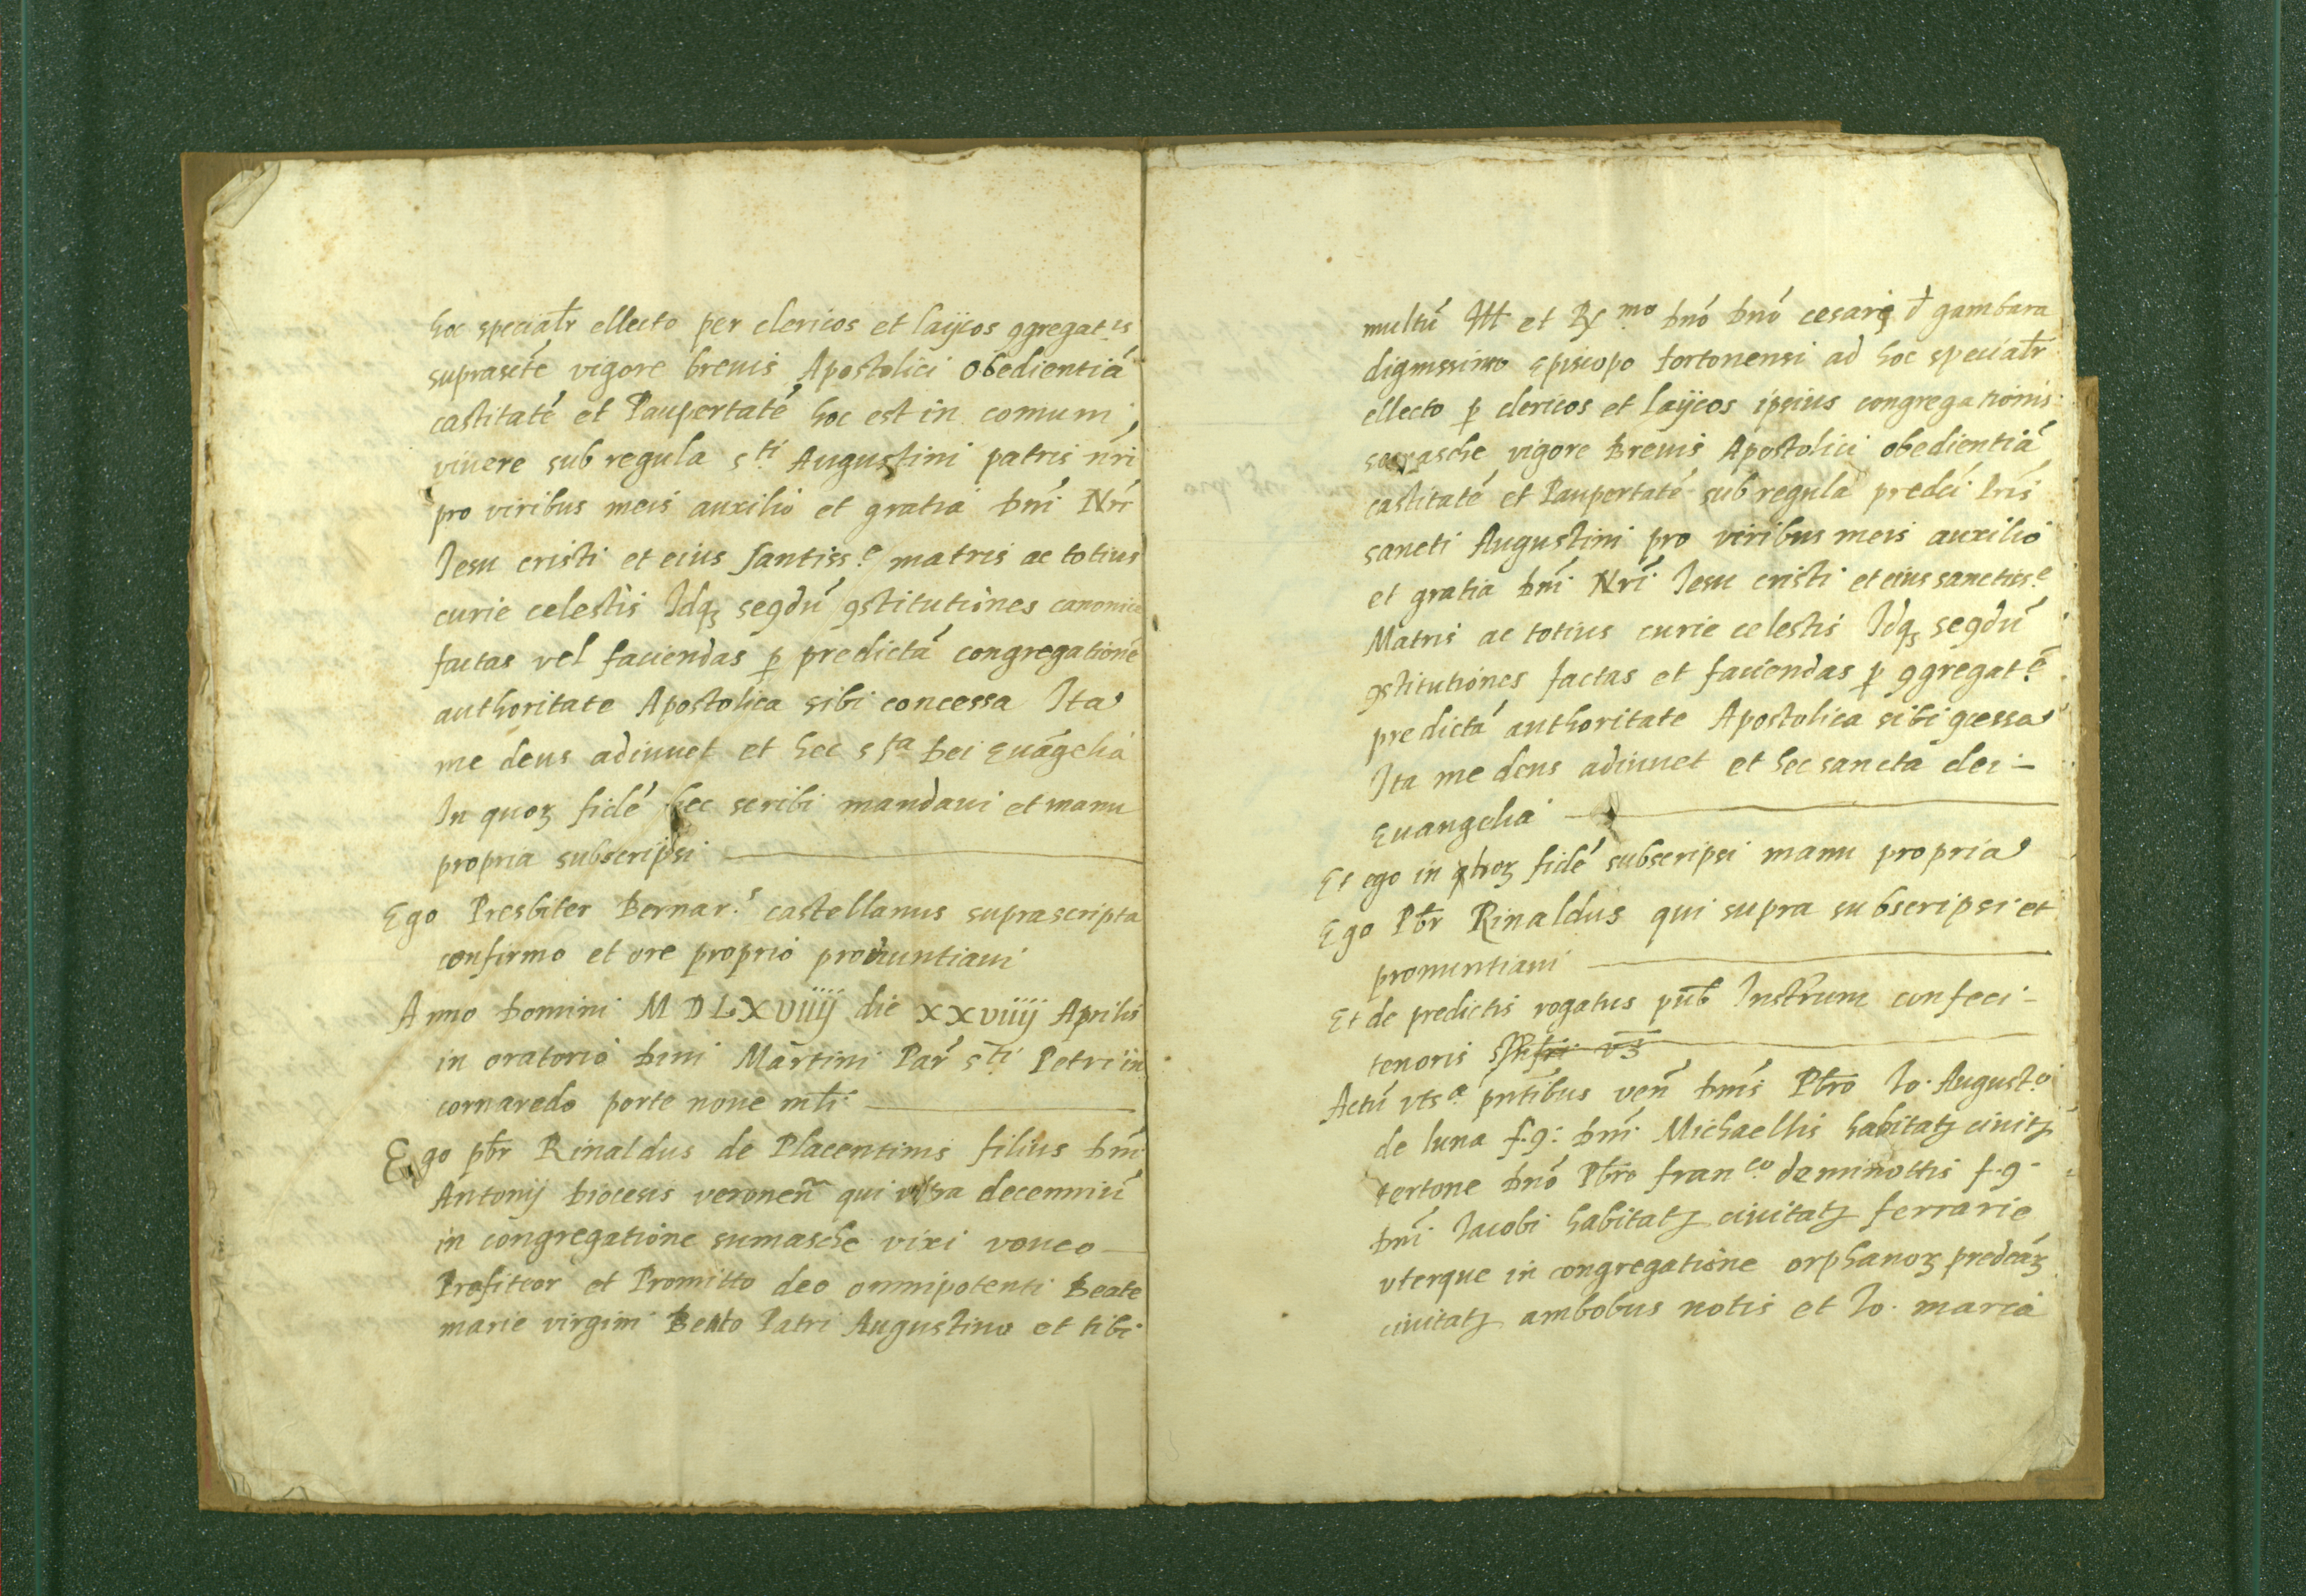 hoc specialr̄ ellecto per clericos et laijcos ꝯgregat.is
suprascte͂ vigore breuis Apostolici obedientiā
castitatē et Paupertatē hoc est in comuni,
viuere sub regula s.ti Augustini patris nr̄i
pro viribus meis auxilio et gratia dn̄i Nr̄i
Iesu cristi et eius santiss.e matris ac totius
curie celestis Idqꝫ segdū ꝯstitutiones canonice
factas vel faciendas ꝑ predictā congregationē
authoritate Apostolica sibi concessa Ita
me deus adiuuet et hec s.ta Dei Euāgelia
In quoꝝ fidē hec scribi mandaui et manu
propria subscripsi
Ego Presbiter Bernar.s castellanus suprascripta
confirmo et ore proprio pronuntiaui
Anno Domini MDLXViiij die XXViiij Aprilis
in oratorio Diui Martini Par̄ s.ti Petri in
cornaredo porte noue mli
Ego pb̄r Rinaldus de Placentinis filius Dn̄i
Antonij Diocesis veronen̄ qui vltra decenniū
in congregatione sumasche vixi voueo
Profiteor et Promitto deo omnipotenti Beate
marie virgini Beato Patri Augustino et tibi
multū Ill et R.mo Dnō Dnō cesari đ gambara
dignissimo Episcopo tortonensi ad hoc specialr̄
ellecto ꝑ clericos et laijcos ipsius congregationis
vigore Breuis Apostolici obedientiā
castitatē et Paupertatē sub regula predci Pris
sancti Augustini pro viribus meis auxilio
et gratia Dn̄i Nr̄i Iesu cristi et eius sanctiss.e
Matris ac totius curie celestis Idqꝫ segdū
ꝯstitutiones factas et faciendas ꝑ ꝯgregat.ē
predictā authoritate Apostolica sibi ꝯcessa
Ita me deus adiuuet et hec sancta dei –
Euangelia
Et ego in quoꝝ fidē subscripsi manu propria
Ego Pb̄r Rinaldus qui supra subscripsi et
pronuntiaui
Et de predictis rogatus pub̄ Instr̄um confeci –
tenoris
Actū vts.a pnt̄ibus ven̄ Dnīs Pb̄ro Io. August.o
de luna f.q. Dn̄i Michaellis habitatꝫ ciuitꝫ
tertone Dnō Pb̄ro fran.co de minottis f.q.
Dn̄i Iacobi habitatꝫ ciuitatꝫ ferrarie
vterque in congregatione orphanoꝝ predcāꝝ
ciuitatꝫ ambobus notis et Io. maria